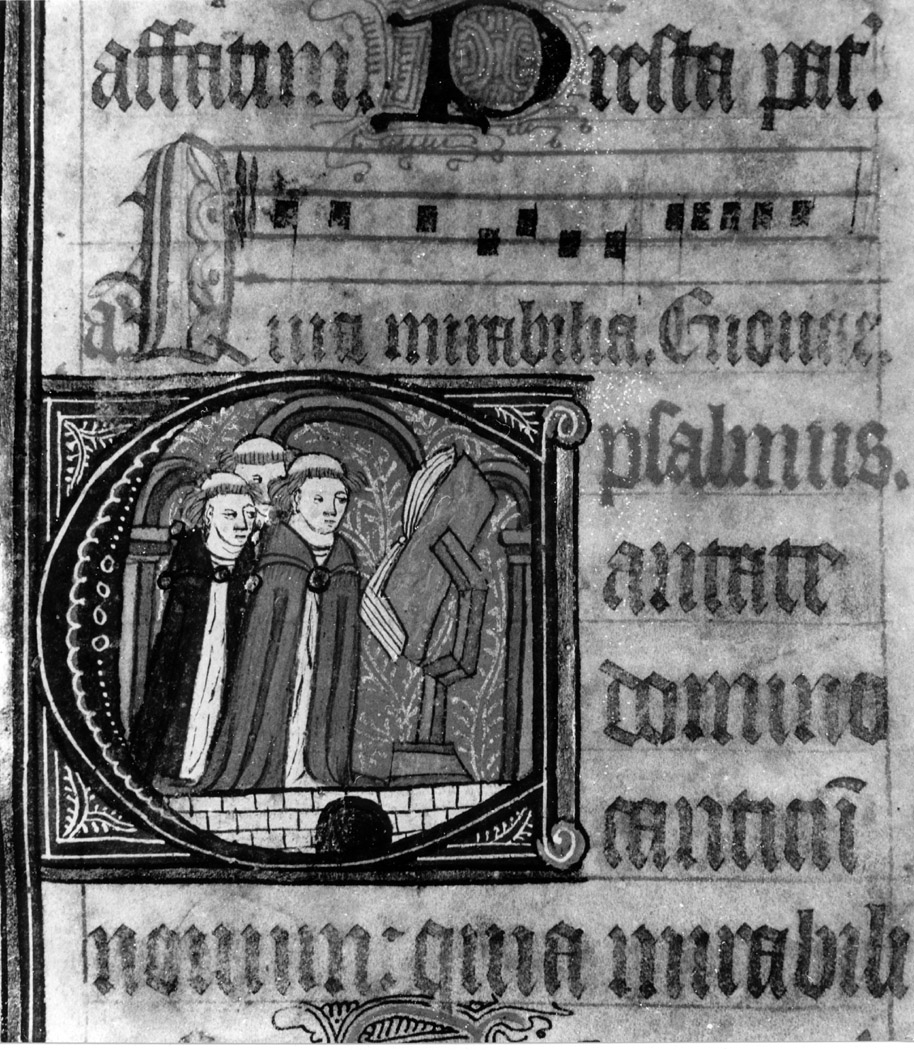 affatim. Presta pat'.
a' Quia mirabilia. Euouae.
psalmus.
Cantate
domino
canticū
nouum: quia mirabili